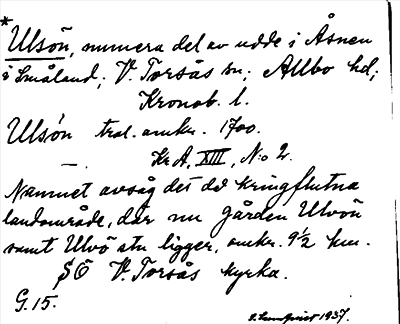 *
Ulsön, numera del av udde i Åsnen
i Småland; V. Torsås sn; Allbo hd;
Kronob. l.
Ulsön trol. omkr. 1700.
—. Kr A, XIII, N:o 2.
Namnet avsåg det då kringflutna
landområde, där nu gården Ulvön
samt Ulvö stn ligger, omkr. 9½ km.
SÖ V. Torsås kyrka.
G. 15.
S. Lundqvist 1937.